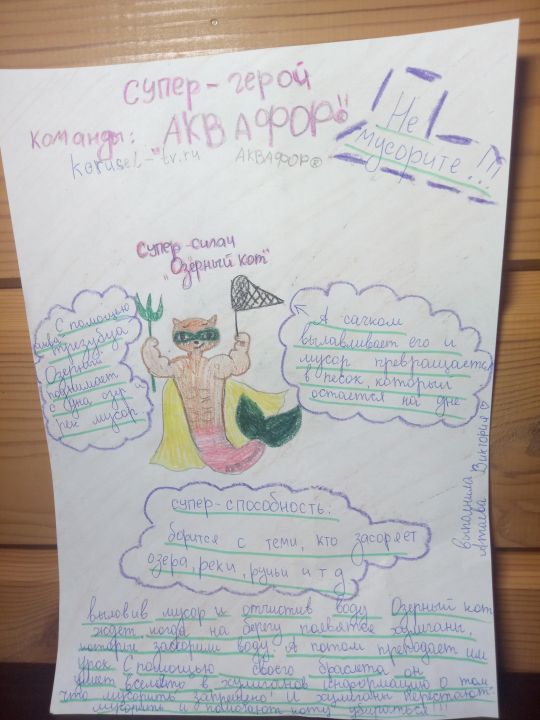 супер-герой
команды: "АКВАФОР"
karusel-tv.ru АКВАФОР®
Не
мусорите...!!!
Супер-силач
"Озёрный кот"
С помощью
трезубца
Озёрный
поднимает
с дна озёр и
рек мусор
А сачком
вылавливает его и
мусор превращается
в песок, который
остается на дне
выполнила
Виктория
супер-способность:
борится с теми, кто засоряет
озера, реки, ручьи и т д
выловив мусор и отчистив воду Озерный кот
ждет когда на берегу появятся хулиганы,
которые засорили воду А потом преподает им
урок С помощью своего браслета он
может вселять в хулиганов информацию о том
что мусорить запрещено! И хулиганы перестают
мусорить и помогают коту убираться!!!